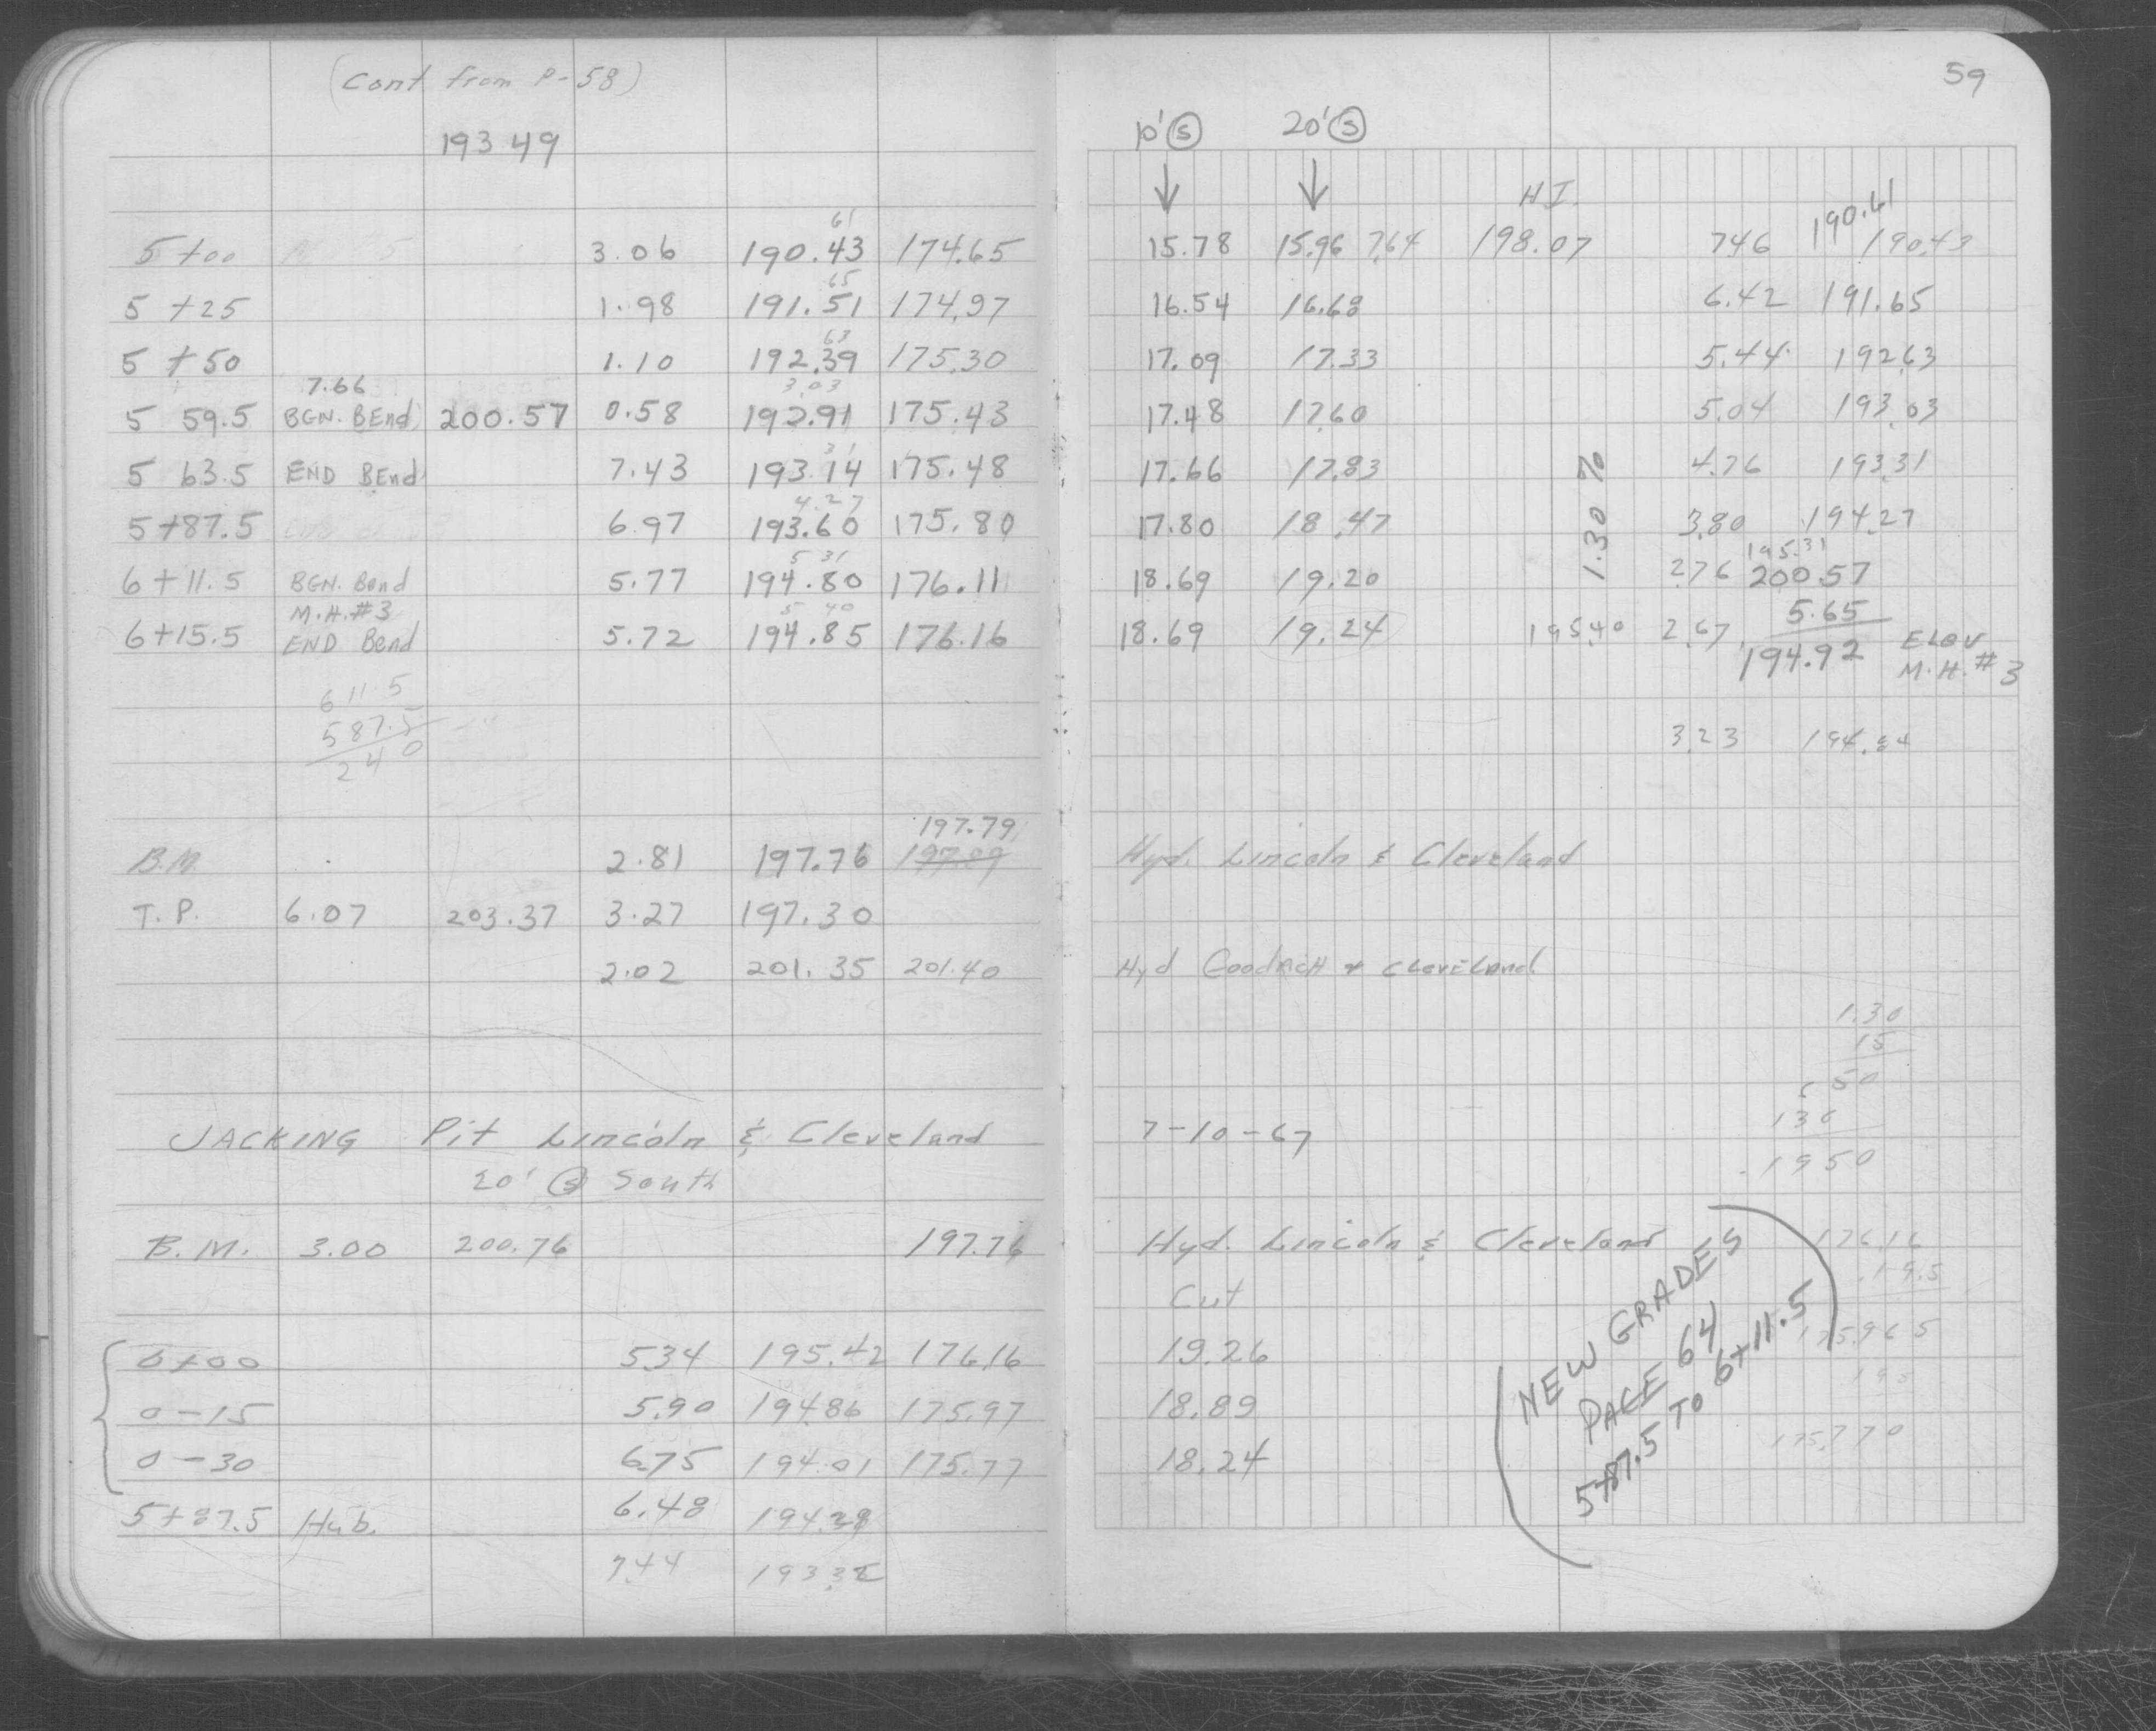 (Cont from P-58)
193 49
61
5+00 3.06 190.43 174.65
65
5 +25 1.98 191.51 174.97
63
5 +50 1.10 192.39 175.30
7.66 3.03
5 59.5 BGN. BEnd 200.57 0.58 192.91 175.43
31
5 63.5 END BEnd 7.43 193.14 175.48
4.27
5+87.5 6.97 193.60 175.80
5 31
6+11.5 BGN. Bend 5.77 194.80 176.11
M.H.#3 5 40
6+15.5 END Bend 5.72 194.85 176.16
6 11.5
587.5
24 0
197.79
B.M. 2.81 197.76 197.89
T.P. 6.07 203.37 3.27 197.30
2.02 201.35 201.40
JACKING Pit Lincoln & Cleveland
20' Ⓢ South
B.M. 3.00 200.76 197.76
0+00 5.34 195.42 176.16
0-15 5.90 194.86 175.97
0-30 6.75 194.01 175.77
5+87.5 Hub. 6.48 194.28
7.44 193.32
59
10' Ⓢ 20' Ⓢ
↓ ↓ H I.
190.61
15.78 15.96 7.64 198.07 7.46 190.43
16.54 16.68 6.42 191.65
17.09 17.33 5.44 192.63
17.48 17.60 5.04 193.03
17.66 17.83 4.76 193.31
1.30 %
17.80 18.47 3.80 194.27
195.31
18.69 19.20 2.76 200.57
5.65
18.69 19.24 195.40 2.67 194.92 ELEV
M.H.#3
3.23 194.84
Hyd. Lincoln & Cleveland
Hyd Goodrich + Cleveland
1.30
15
650
130
1950
7-10-67
Hyd. Lincoln & Cleveland
176.16
.195
Cut
175.965
195
175.770
19.26
18.89
18.24
NEW GRADES
PAGE 64
5+87.5 TO 6+11.5